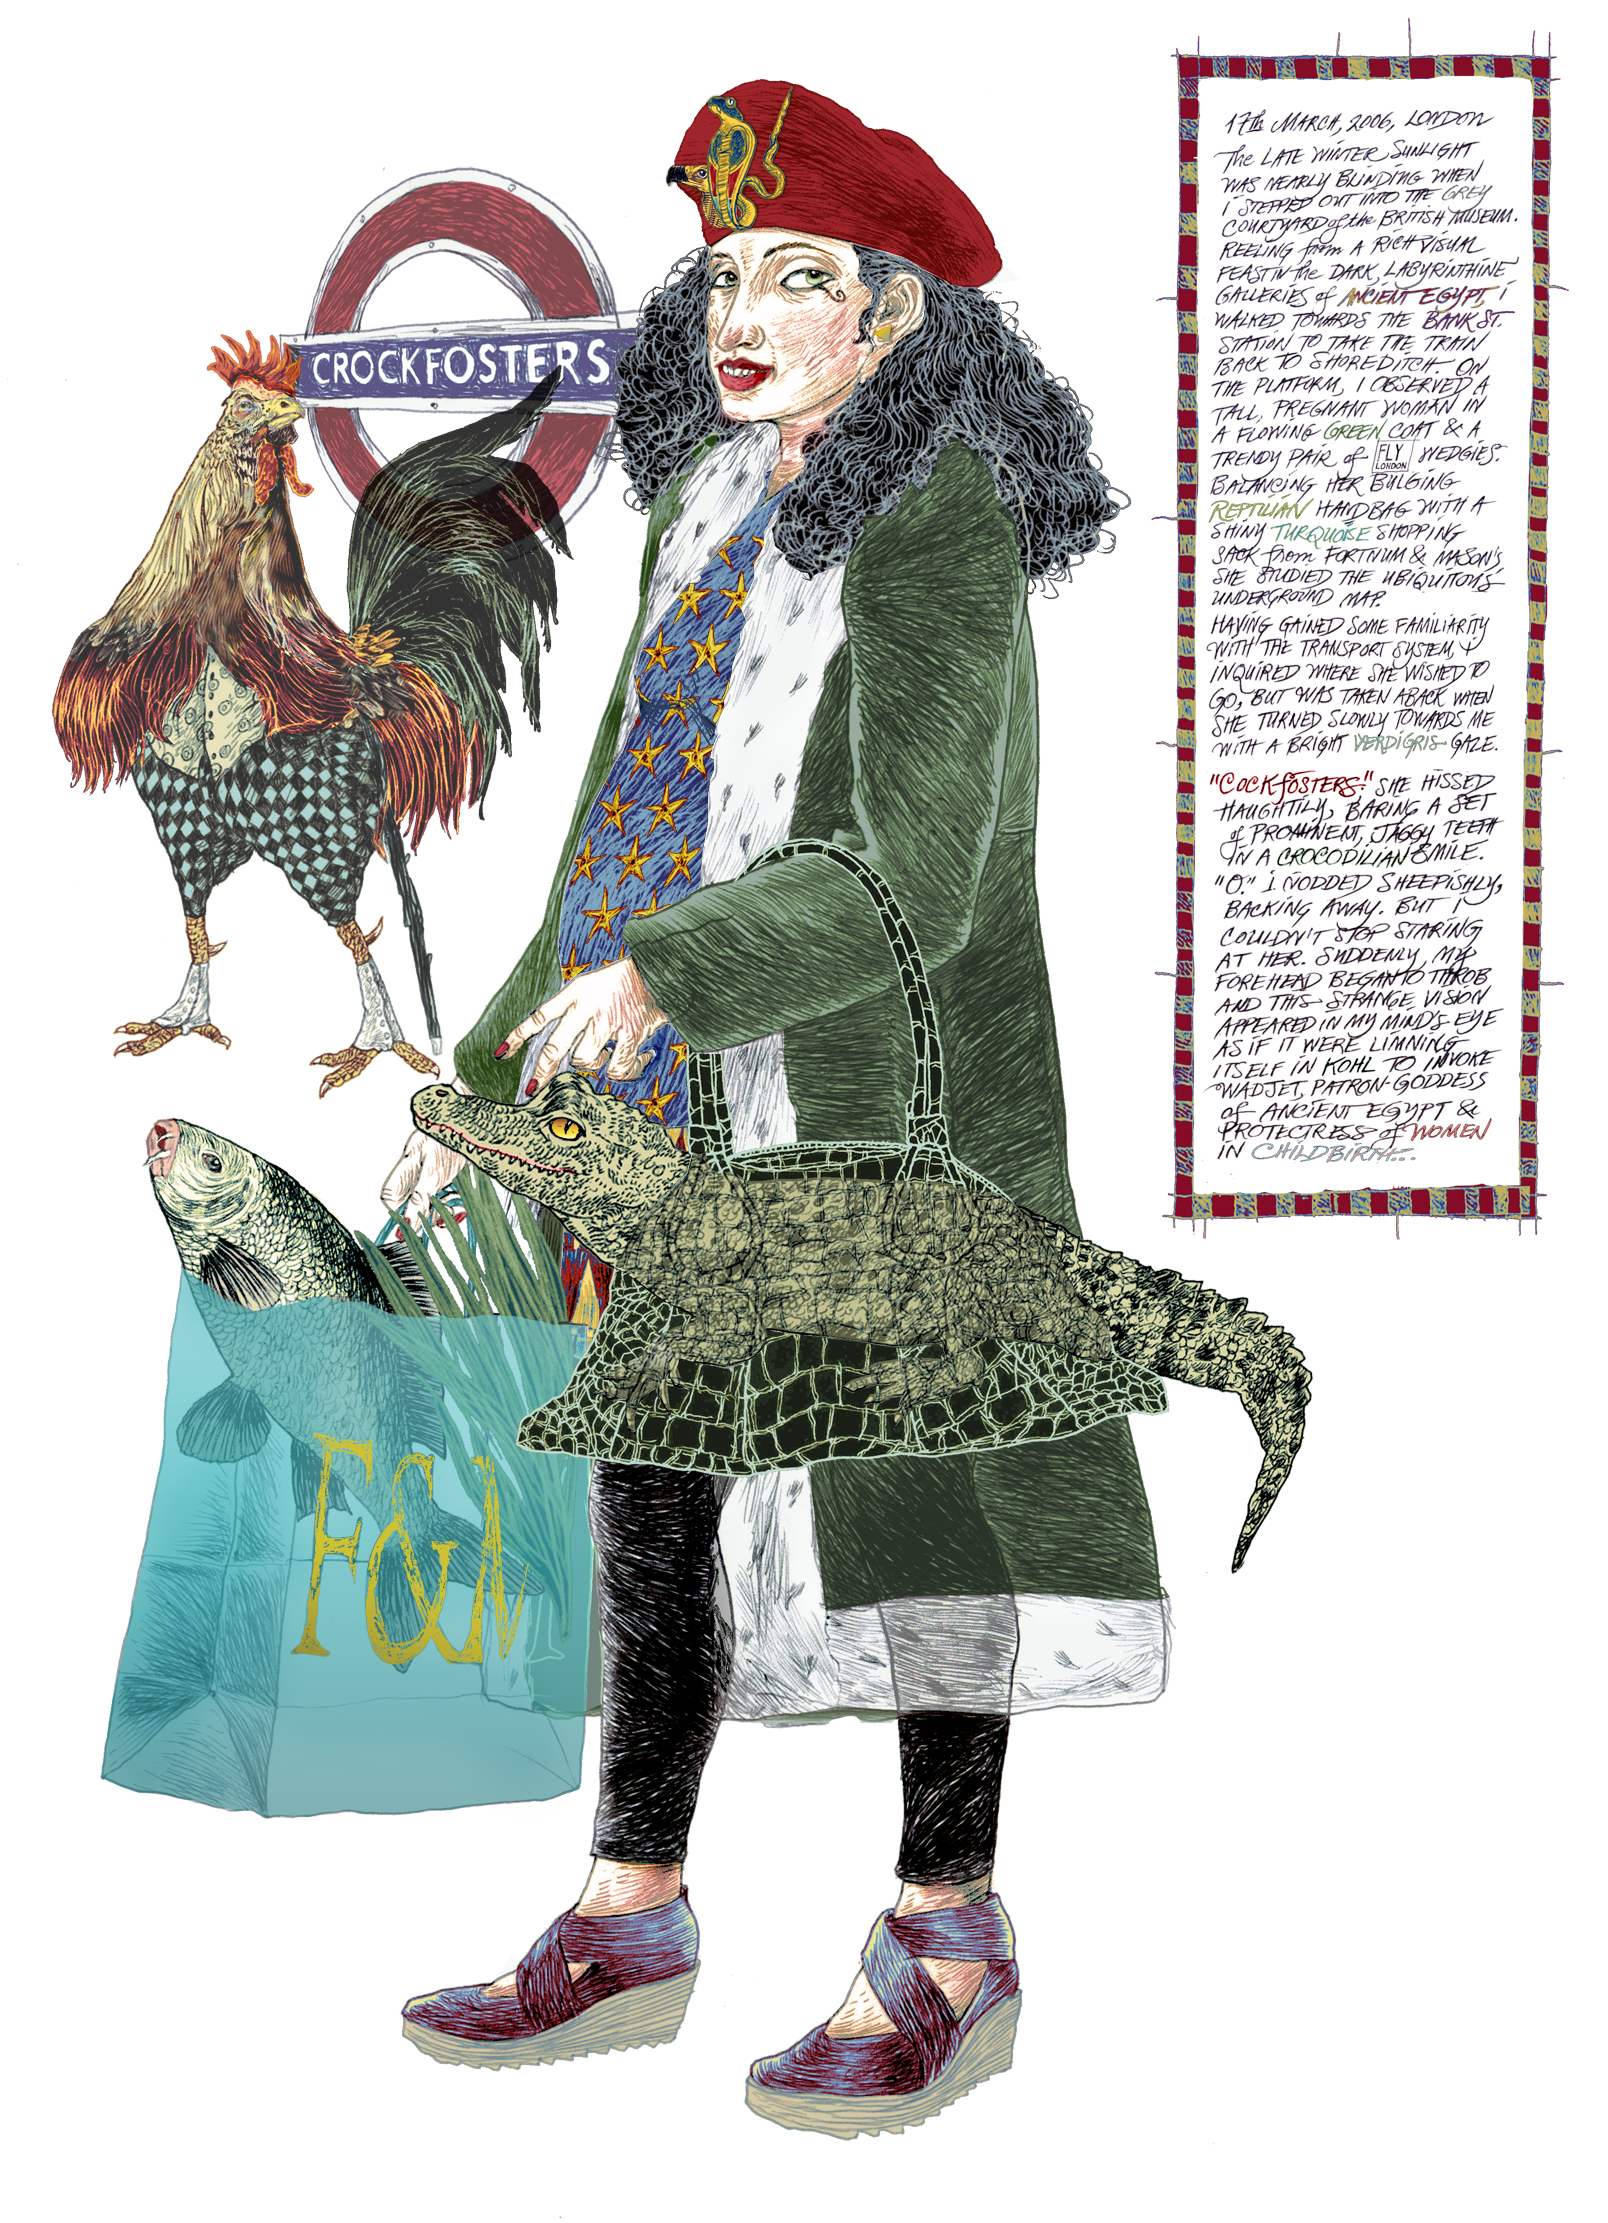 CROCKFOSTERS
F&M
17th MARCH, 2006, LONDON
The LATE WINTER SUNLIGHT
WAS NEARLY BLINDING WHEN
i STEPPED OUT INTO THE GREY
COURTYARD of the BRITISH MUSEUM.
REELING from A RICH VISUAL
FEAST IN the DARK, LABYRINTHINE
GALLERIES of ANCIENT EGYPT, i
WALKED TOWARDS THE BANK ST.
STATION TO TAKE THE TRAIN
BACK TO SHOREDITCH. ON
THE PLATFORM, I OBSERVED A
TALL, PREGNANT WOMAN IN
A FLOWING GREEN COAT & A
TRENDY PAIR of FLY LONDON WEDGIES.
BALANCING HER BULGING
REPTILIAN HANDBAG WITH A
SHINY TURQUOISE SHOPPING
SACK from FORTNUM & MASON'S,
SHE STUDIED THE UBIQUITOUS
UNDERGROUND MAP.
HAVING GAINED SOME FAMILIARITY
WITH THE TRANSPORT SYSTEM, I
INQUIRED WHERE SHE WISHED TO
GO, BUT WAS TAKEN ABACK WHEN
SHE TURNED SLOWLY TOWARDS ME
WITH A BRIGHT VERDIGRIS GAZE.
"COCKfOSTERS." SHE HISSED
HAUGHTILY, BARING A SET
of PROMINENT, JAGGY TEETH
IN A CROCODILIAN SMILE.
"O." i NODDED SHEEPISHLY,
BACKING AWAY. BUT I
COULDN'T STOP STARING
AT HER. SUDDENLY, MY
FOREHEAD BEGAN TO THROB
AND THIS STRANGE VISION
APPEARED IN MY MIND'S EYE
AS IF IT WERE LIMNING
ITSELF IN KOHL TO INVOKE
WADJET, PATRON-GODDESS
of ANCIENT EGYPT &
PROTECTRESS of WOMEN
IN CHILDBIRTH...